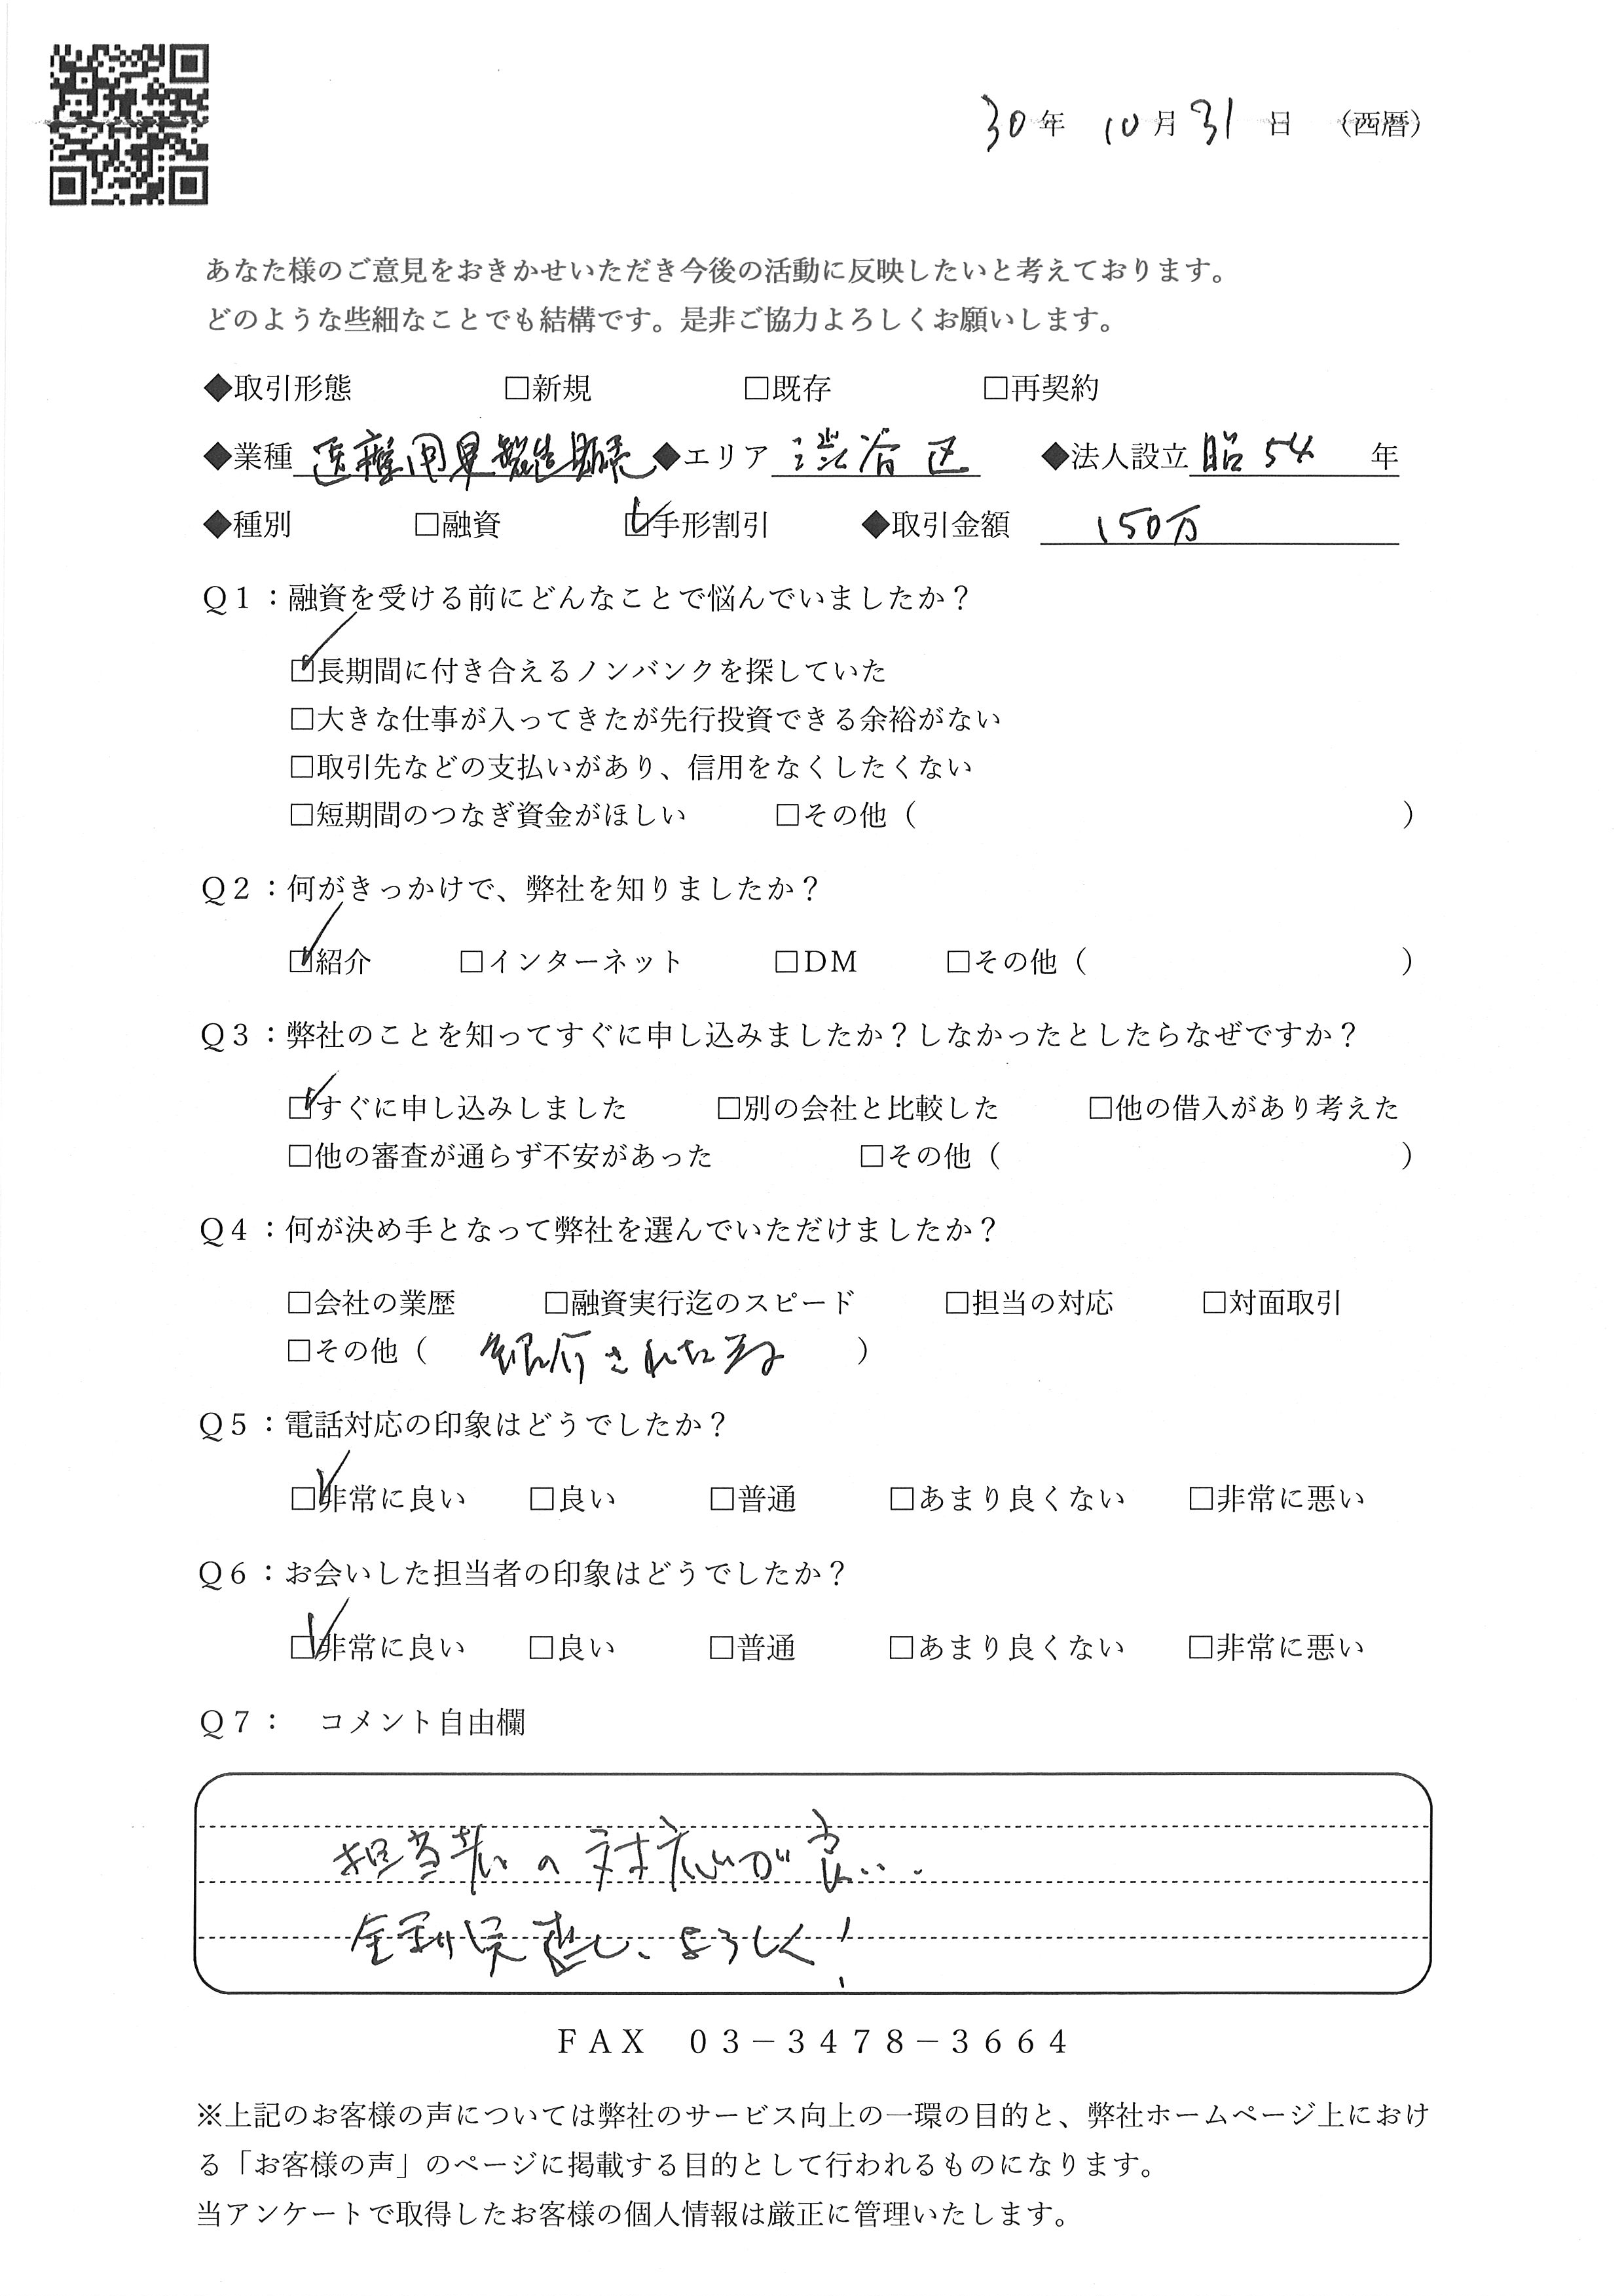 30年 10月31日 （西暦）
あなた様のご意見をおきかせいただき今後の活動に反映したいと考えております。
どのような些細なことでも結構です。是非ご協力よろしくお願いします。
◆取引形態 □新規 □既存 □再契約
◆業種 医療用具製造販売 ◆エリア 渋谷区 ◆法人設立 昭54 年
◆種別 □融資 ☑手形割引 ◆取引金額 150万
Q1：融資を受ける前にどんなことで悩んでいましたか？
☑長期間に付き合えるノンバンクを探していた
□大きな仕事が入ってきたが先行投資できる余裕がない
□取引先などの支払いがあり、信用をなくしたくない
□短期間のつなぎ資金がほしい □その他（ ）
Q2：何がきっかけで、弊社を知りましたか？
☑紹介 □インターネット □DM □その他（ ）
Q3：弊社のことを知ってすぐに申し込みましたか？しなかったとしたらなぜですか？
☑すぐに申し込みしました □別の会社と比較した □他の借入があり考えた
□他の審査が通らず不安があった □その他（ ）
Q4：何が決め手となって弊社を選んでいただけましたか？
□会社の業歴 □融資実行迄のスピード □担当の対応 □対面取引
□その他（ された ）
Q5：電話対応の印象はどうでしたか？
☑非常に良い □良い □普通 □あまり良くない □非常に悪い
Q6：お会いした担当者の印象はどうでしたか？
☑非常に良い □良い □普通 □あまり良くない □非常に悪い
Q7： コメント自由欄
担当者の対応が良い.
金利見直し、よろしく！
FAX 03－3478－3664
※上記のお客様の声については弊社のサービス向上の一環の目的と、弊社ホームページ上におけ
る「お客様の声」のページに掲載する目的として行われるものになります。
当アンケートで取得したお客様の個人情報は厳正に管理いたします。